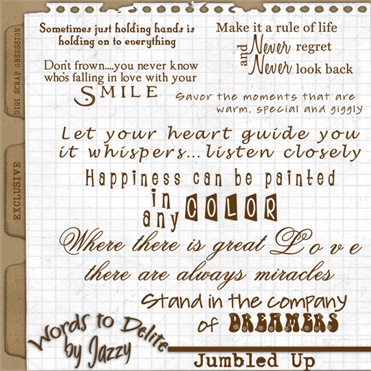 Sometimes just holding hands is
holding on to everything
Make it a rule of life
and Never regret
Never look back
Don't frown....you never know
who's falling in love with your
SMILE
Savor the moments that are
warm, special and giggly
Let your heart guide you
it whispers...listen closely
Happiness can be painted
in
any COLOR
Where there is great Love
there are always miracles
Stand in the company
of DREAMERS
Words to Delite
by Jazzy
Jumbled Up
DIGI SCRAP OBSESSION
EXCLUSIVE